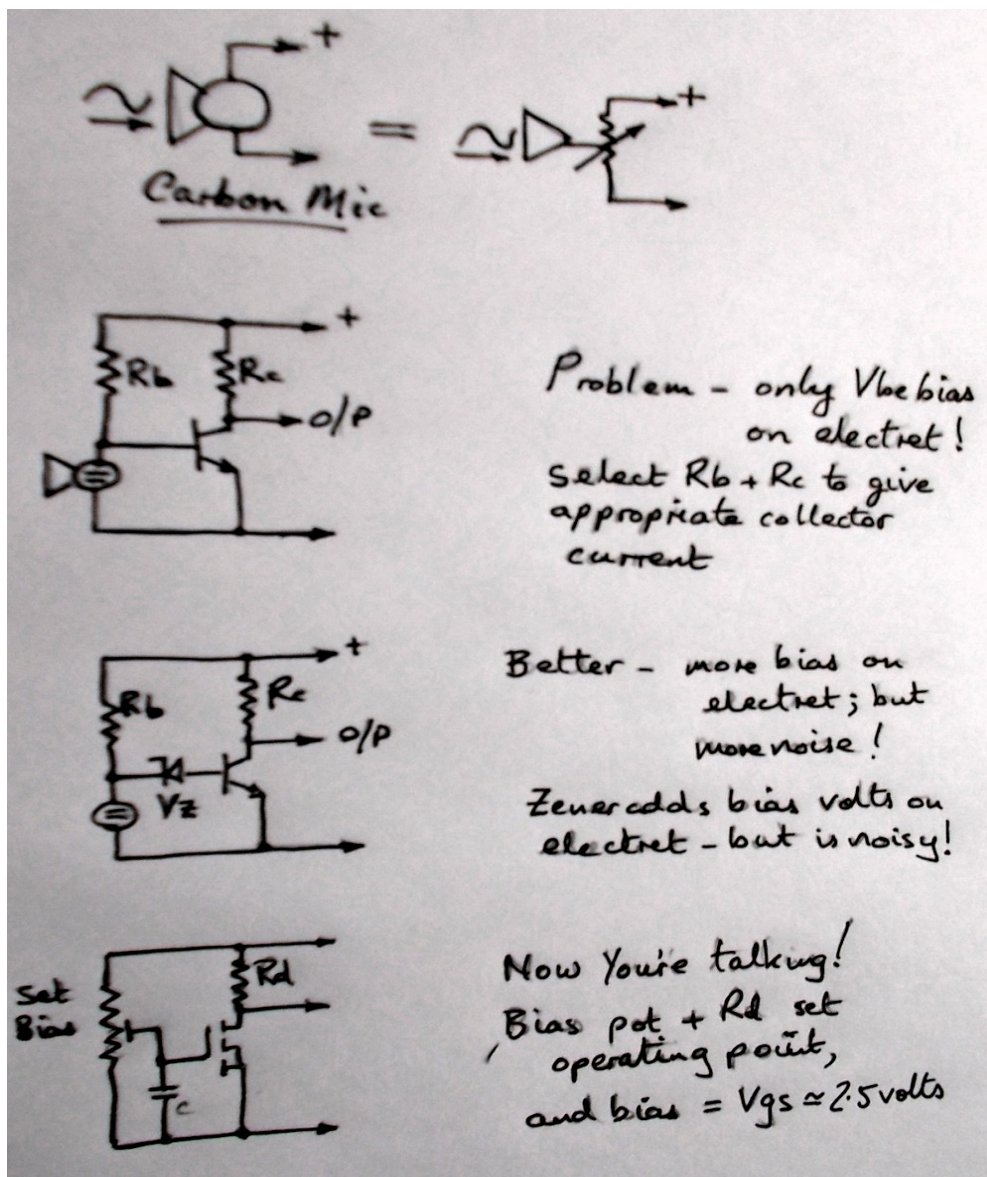 +
+
=
Carbon Mic
+
Rb
Rc
O/P
Problem - only Vbe bias
on electret!
Select Rb + Rc to give
appropriate collector
current
+
Rb
Rc
O/P
Vz
Better - more bias on
electret; but
more noise!
Zener adds bias volts on
electret - but is noisy!
Set
Bias
Rd
C
Now You're talking!
Bias pot + Rd set
operating point,
and bias = Vgs ≃ 2.5 volts